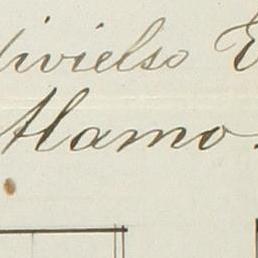 ivielso E
Alamo.